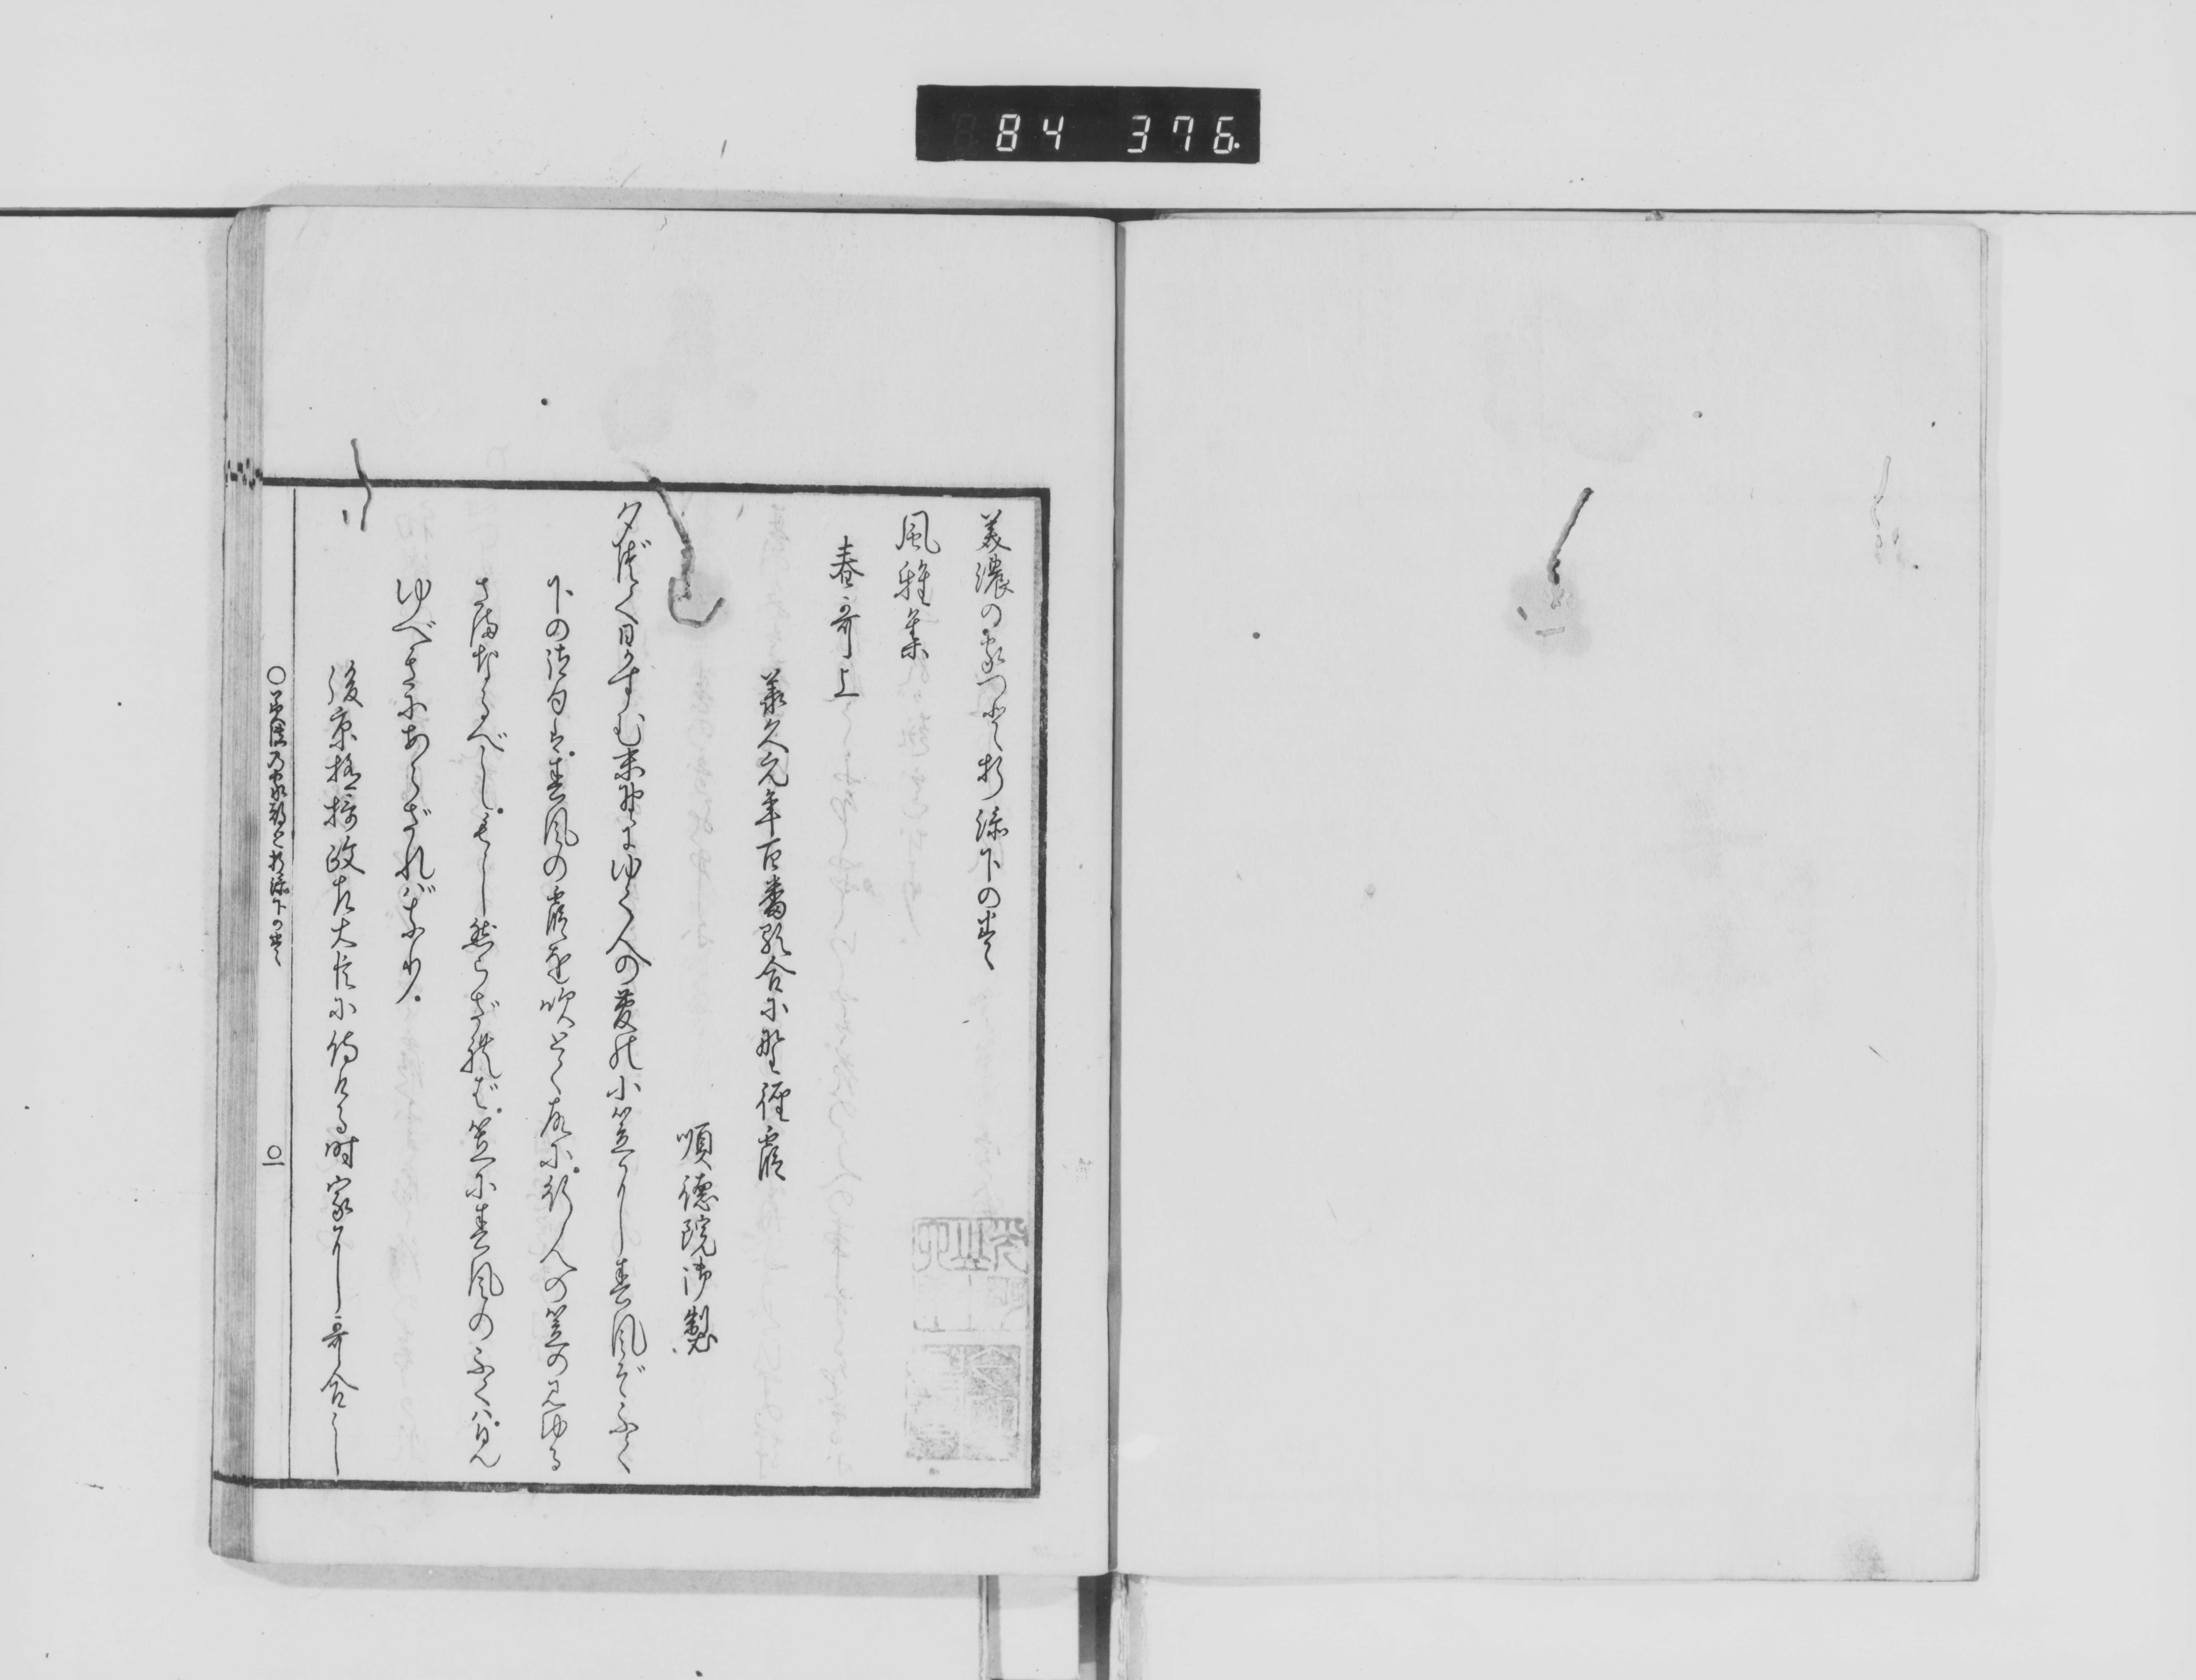 84 376
美濃の家つと折添下の巻
風雅集
春哥上
承久元年百番歌合に野径霞
順徳院御製
夕づく日かすむ末野にゆく人の菅の小笠に春風ぞふく
下の御句は。春風の霞を吹とく故に。行人の笠の見ゆる
さまなるべし。もし然らざれば。笠に春風のふくは。見
ゆべきにあらざればなり。
後京極摂政左大臣に侍ける時家に哥合し
〇美濃乃家都と折添下の巻
〇一